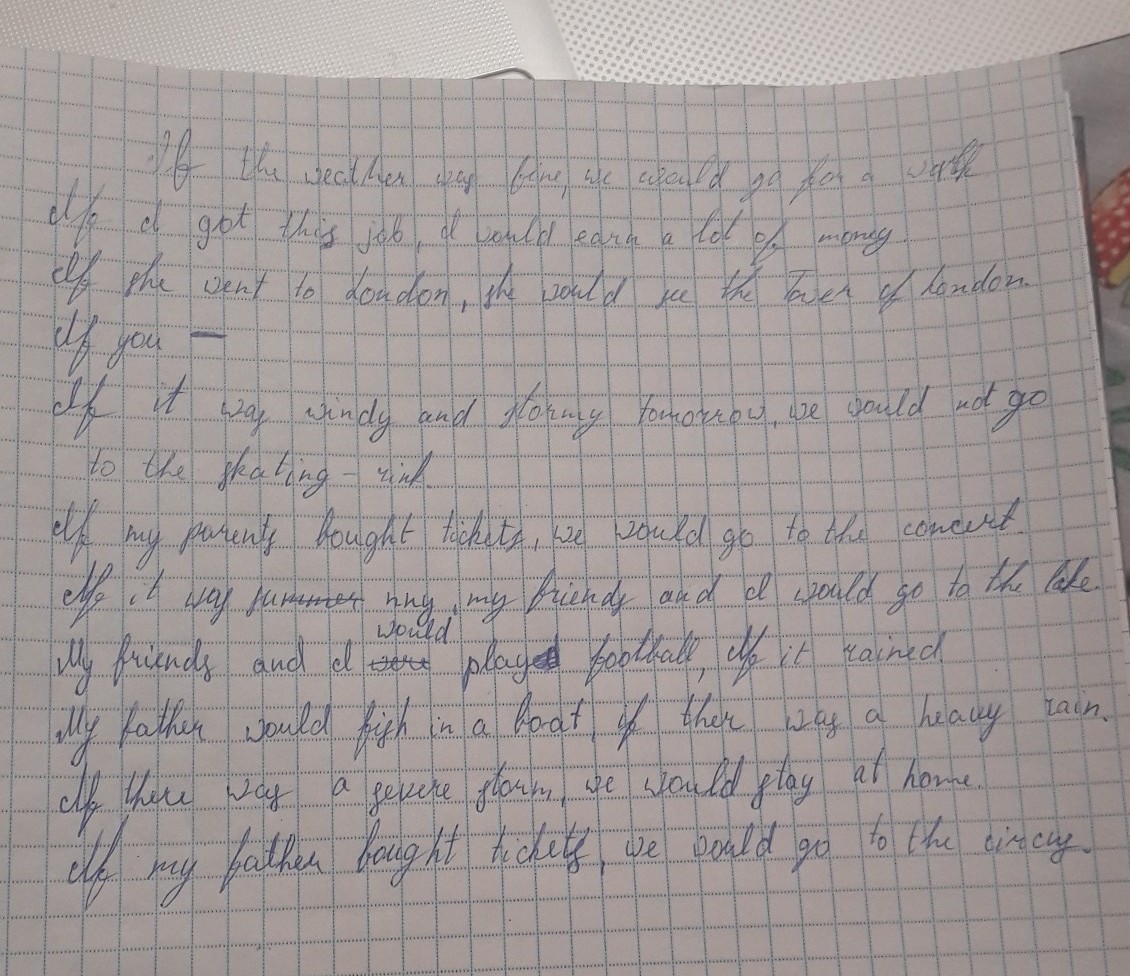 If the weather was fine, we would go for a walk
If I got this job, I would earn a lot of money.
If she went to London, she would see the Tower of London.
If you —
If it was windy and stormy tomorrow, we would not go
to the skating-rink.
If my parents bought tickets, we would go to the concert.
If it was summer nny, my friends and I would go to the lake.
would
My friends and I were played football, If it rained
My father would fish in a boat, if ther was a heavy rain.
If there was a severe storm, we would stay at home.
If my father bought tickets, we would go to the circus.